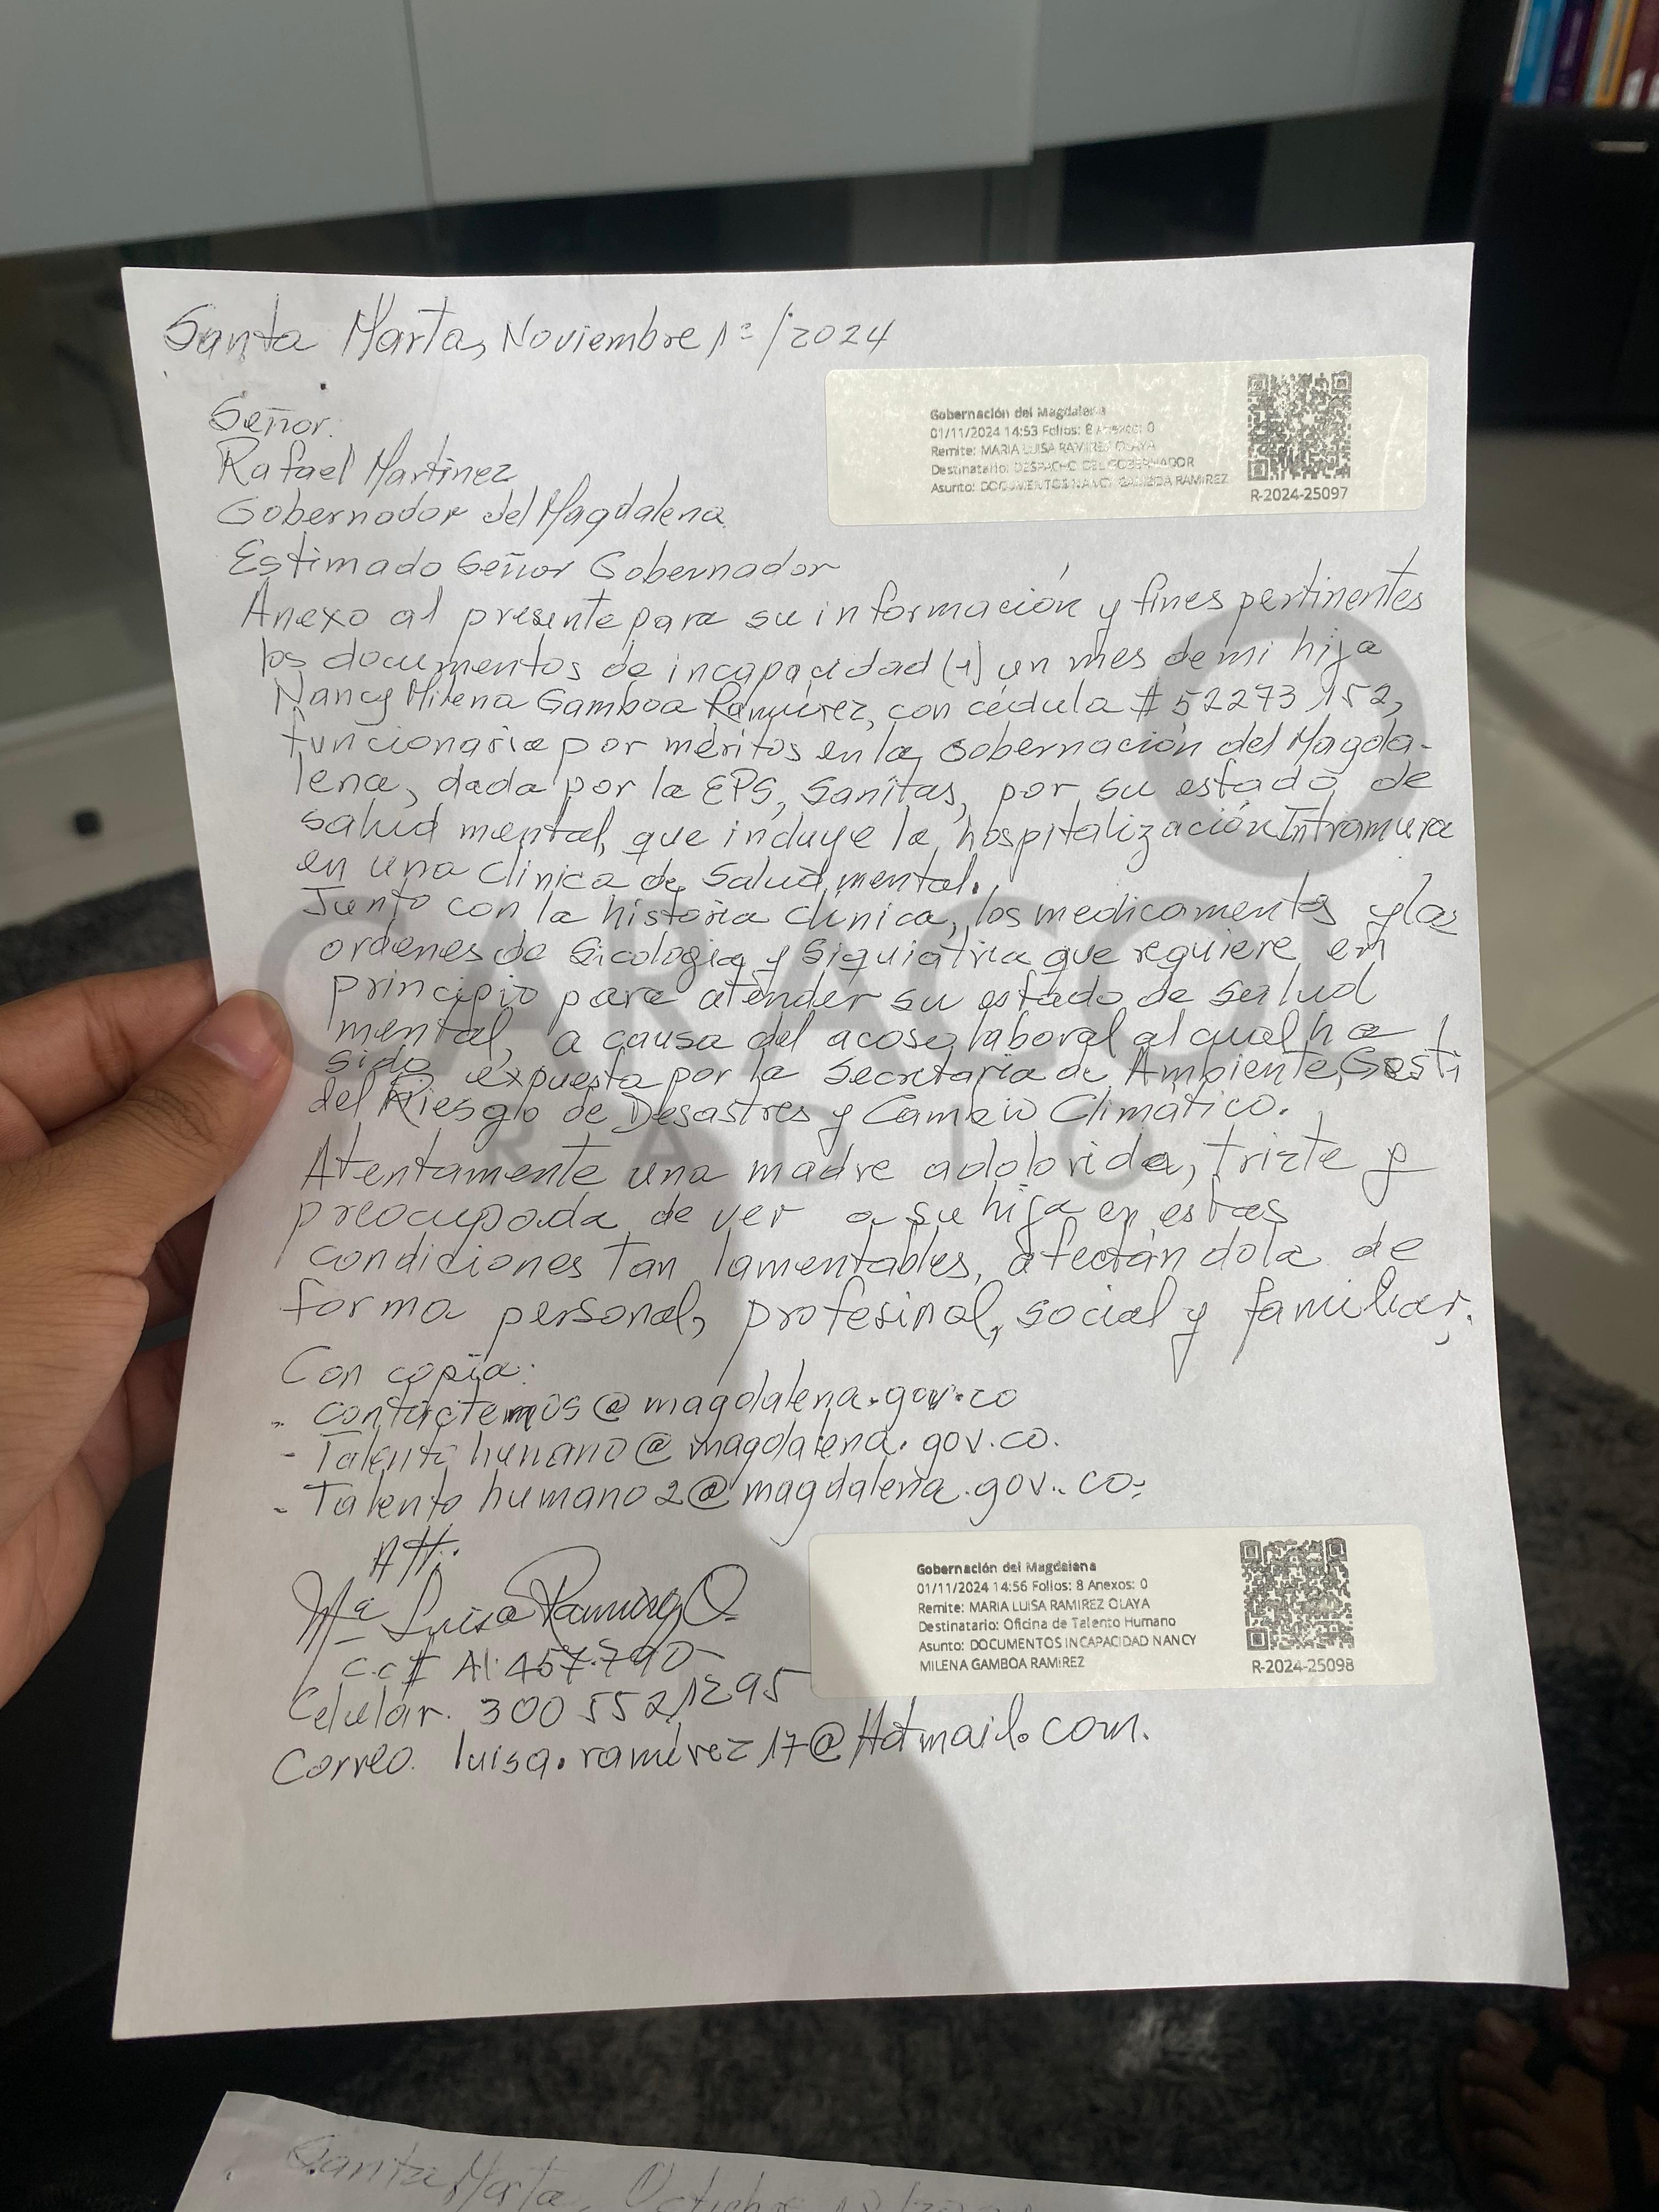 Santa Marta, Noviembre 1º/2024
Gobernación del Magdalena
01/11/2024 14:53 Folios: 8 Anexos: 0
Remite: MARIA LUISA RAMIREZ OLAYA
Destinatario: DESPACHO DEL GOBERNADOR
Asunto: DOCUMENTOS NANCY GAMBOA RAMIREZ
R-2024-25097
Señor.
Rafael Martinez
Gobernador del Magdalena
Estimado Señor Gobernador
Anexo al presente para su información y fines pertinentes
los documentos de incapacidad (1) un mes de mi hija
Nancy Milena Gamboa Ramírez, con cédula # 52273152,
funcionaria por méritos en la Gobernación del Magda-
lena, dada por la EPS, Sanitas, por su estado de
salud mental, que incluye la hospitalización Intramura
en una Clinica de Salud mental.
Junto con la historia clínica, los medicamentos y las
ordenes de Sicologia y Siquiatria que requiere en
principio para atender su estado de salud
mental, a causa del acoso laboral al cual ha
sido expuesta por la Secretaria de Ambiente, Gesti
del Riesgo de Desastres y Cambio Climático.
Atentamente una madre adolorida, trizte y
preocupada de ver a su hija en estas
condiciones tan lamentables, afectándola de
forma personal, profesinal, social y familiar.
Con copia:
- contactemos@magdalena.gov.co
- Talento humano@magdalena.gov.co.
- Talento humano2@magdalena.gov.co.
Att.
Mª Luisa Ramirez O.
Gobernación del Magdalena
01/11/2024 14:56 Folios: 8 Anexos: 0
Remite: MARIA LUISA RAMIREZ OLAYA
Destinatario: Oficina de Talento Humano
Asunto: DOCUMENTOS INCAPACIDAD NANCY
MILENA GAMBOA RAMIREZ
R-2024-25098
c.c # 41.457.790
Celular. 300 5521295
Correo. luisa.ramirez17@Hotmail.com.
CARACOL
RADIO
Santa Marta, Octubre